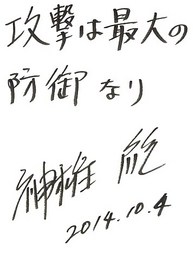 攻撃は最大の
防御なり
2014.10.4